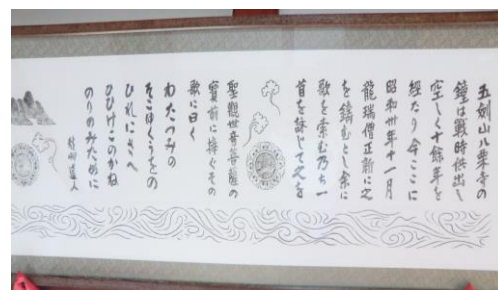 五剣山八栗寺の
鐘は戦時供出し
空しく十餘年を
経たり今ここに
昭和卅年十一月
龍瑞僧正新に之
を鑄むとし余に
歌を索む乃ち一
首を詠じて之を
聖觀世音菩薩の
寳前に捧ぐその
歌に曰く
わたつみの
そこゆくうをの
ひれにさへ
ひびけこのかね
のりのみために
道人